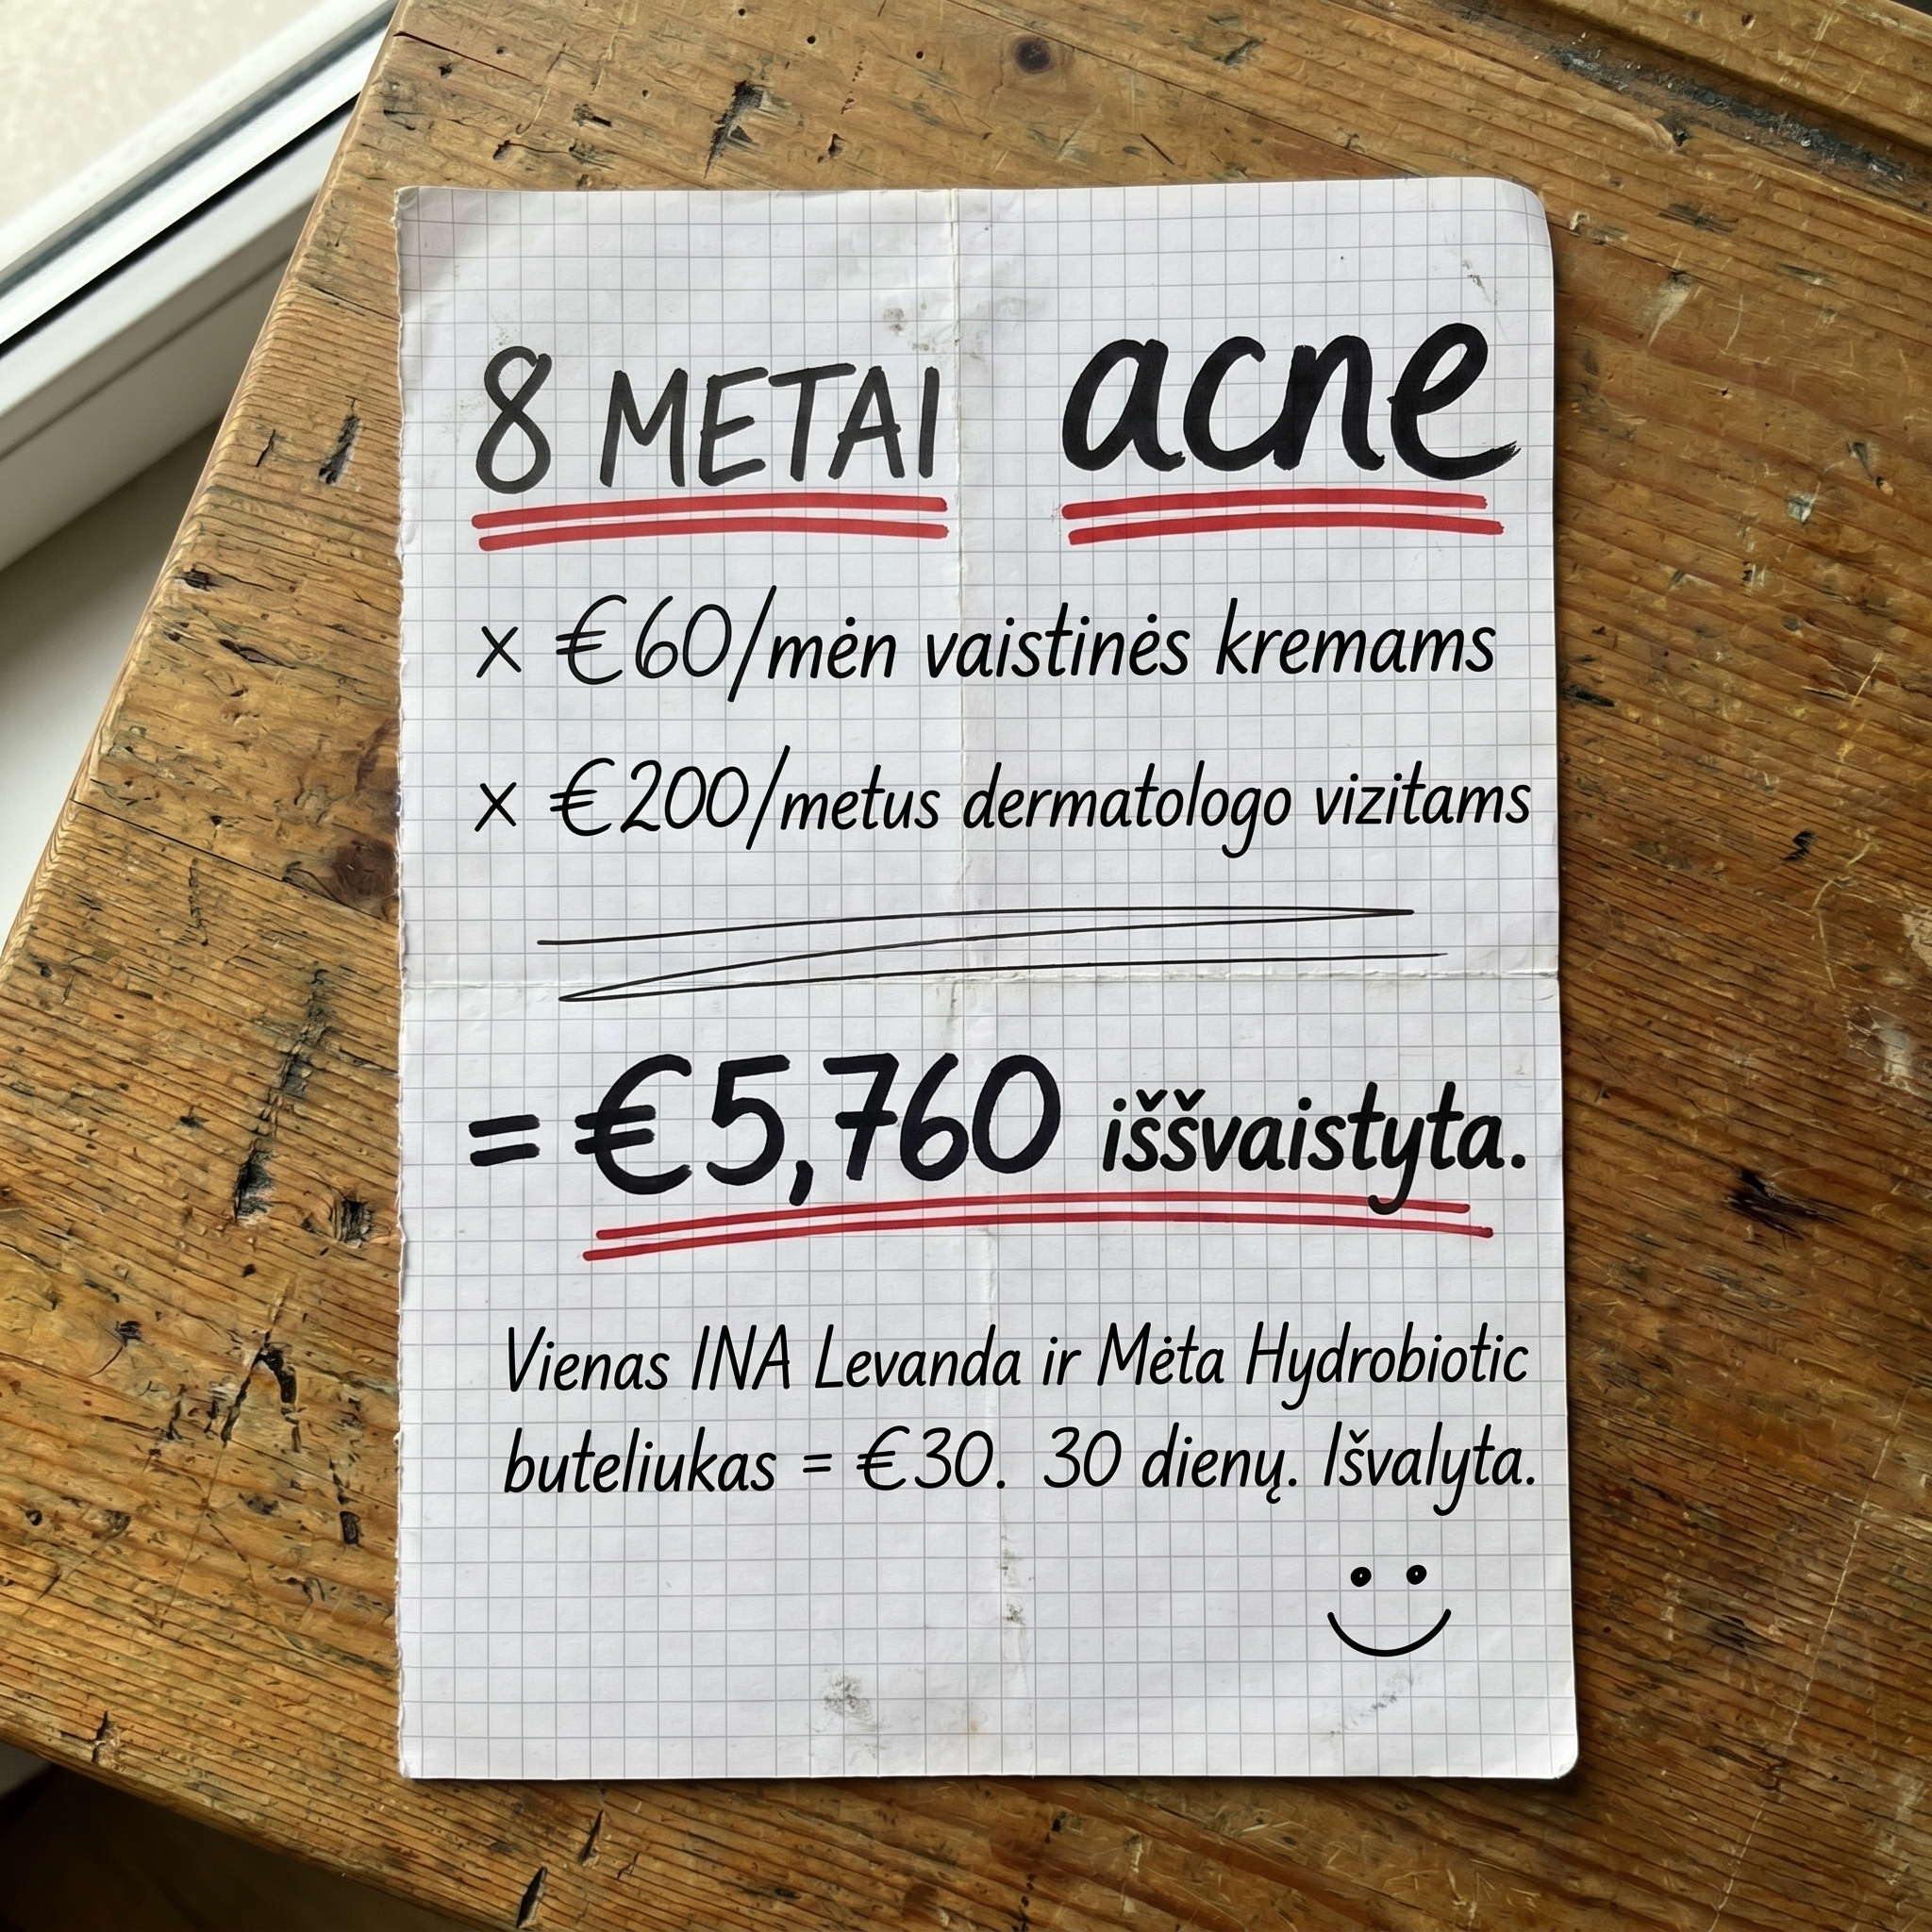 8 METAI acne
× €60/mėn vaistinės kremams
× €200/metus dermatologo vizitams
= €5,760 iššvaistyta.
Vienas INA Levanda ir Mėta Hydrobiotic
buteliukas = €30. 30 dienų. Išvalyta.